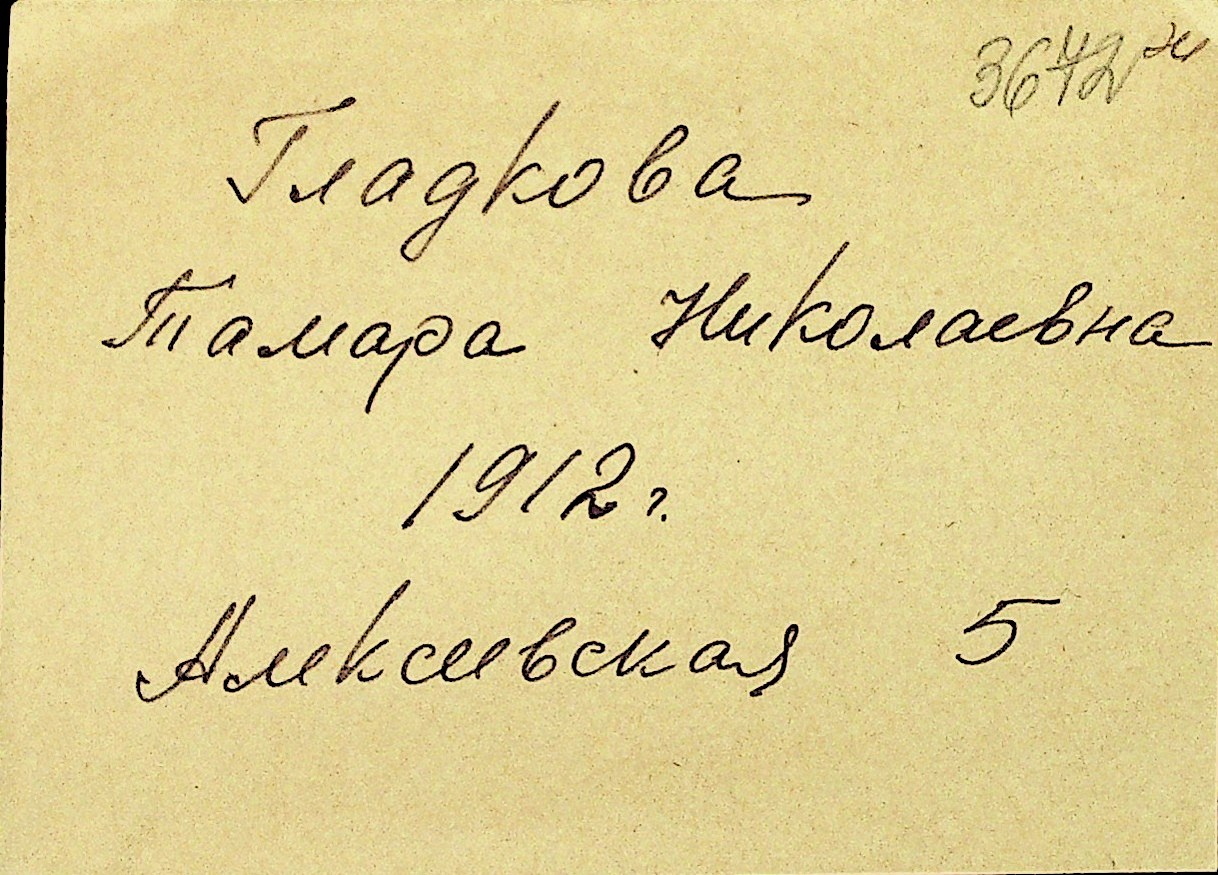 3642
Гладкова
Тамара Николаевна
1912 г.
Алексеевская 5